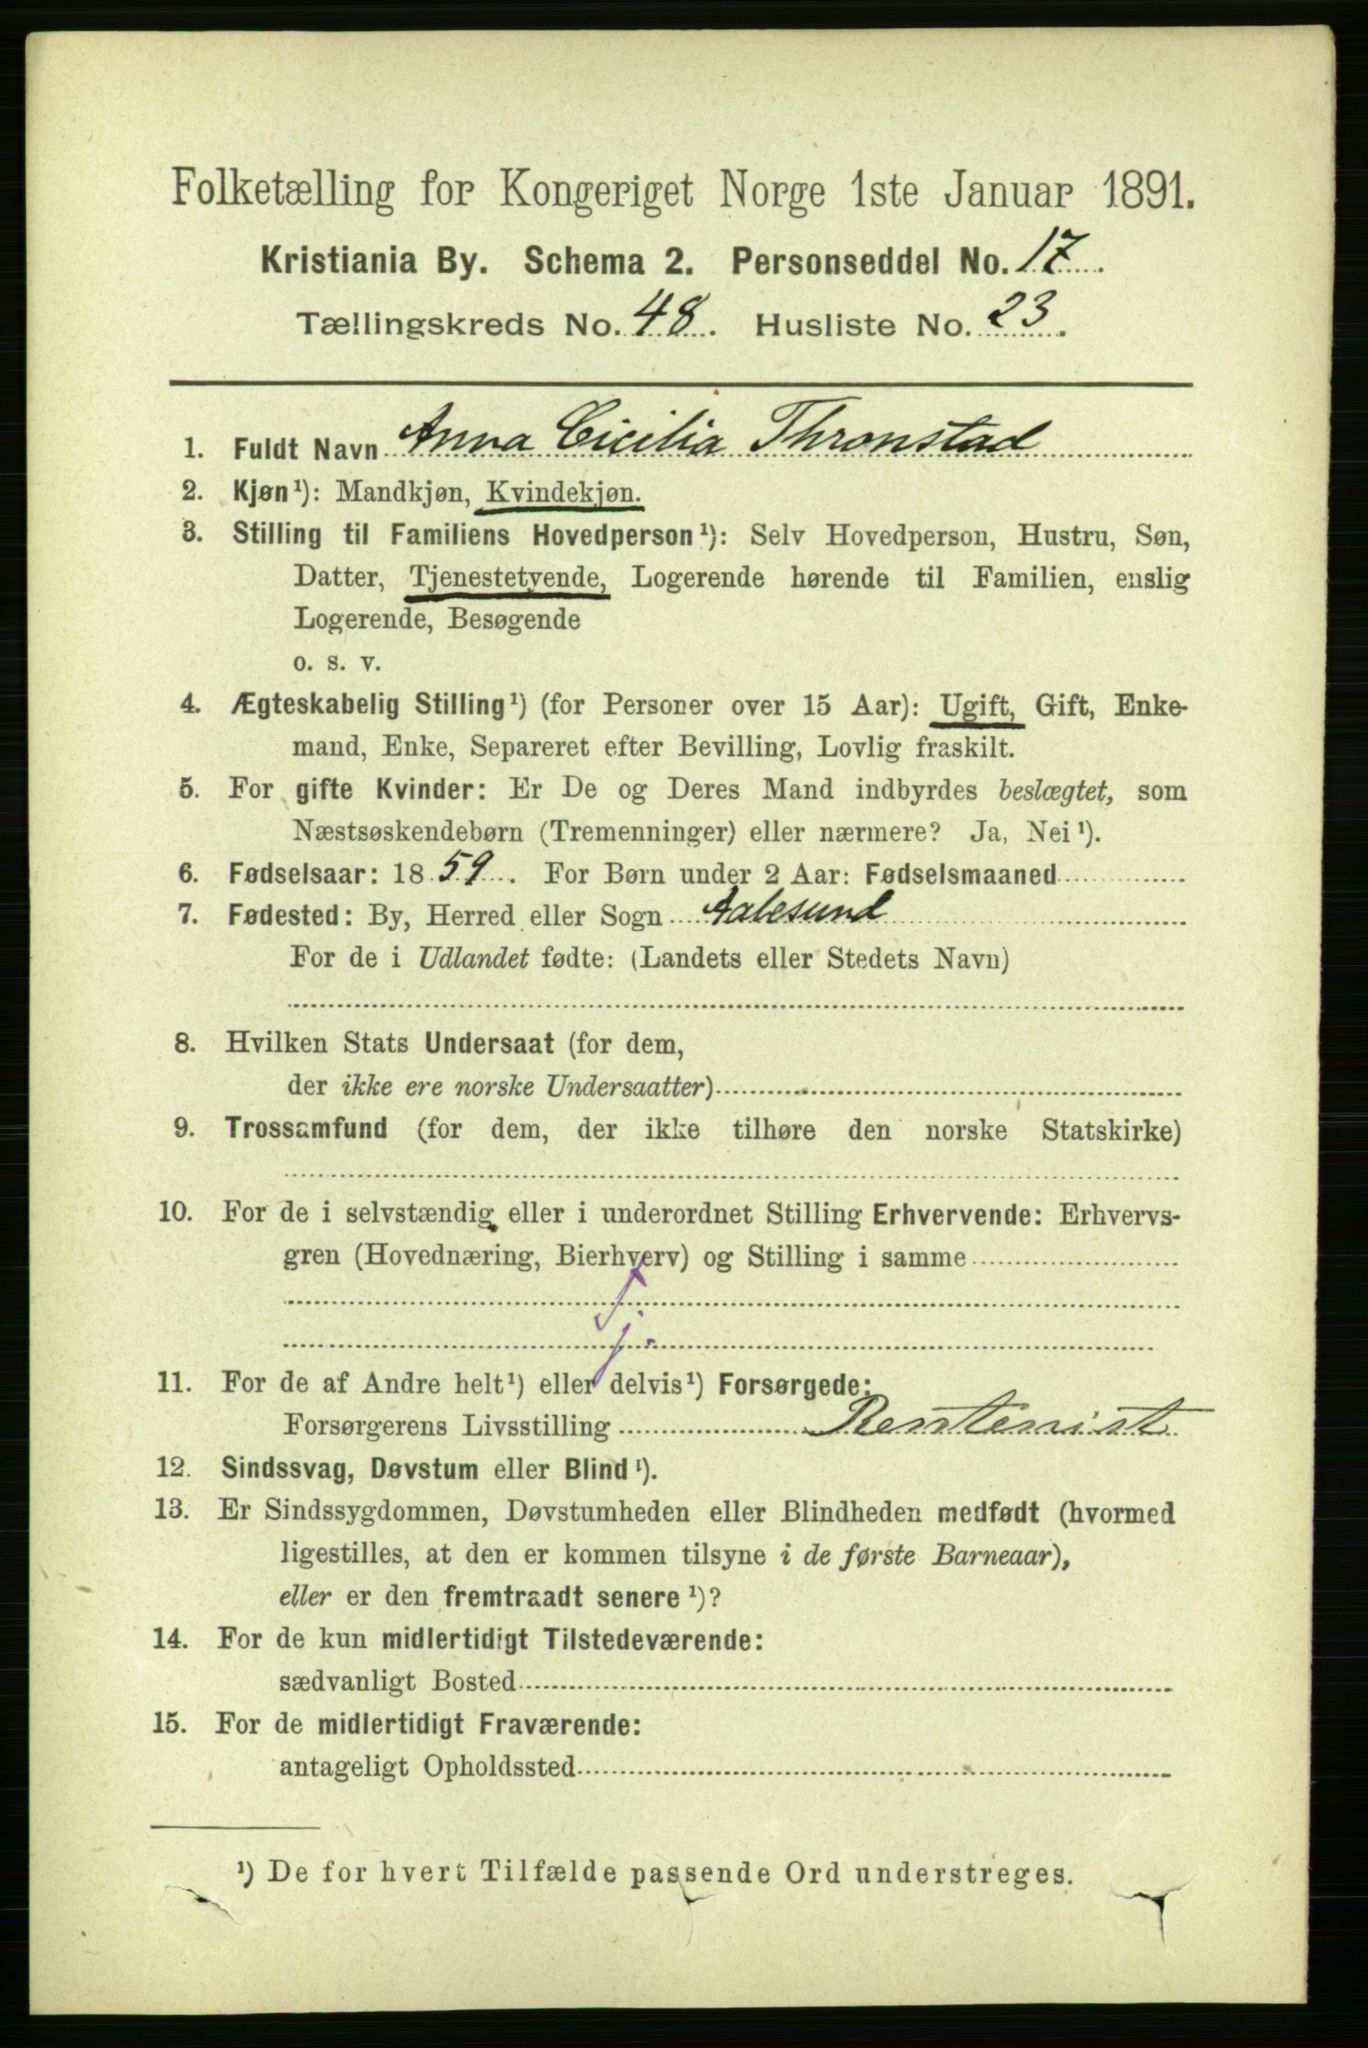 Folketælling for Kongeriget Norge 1ste Januar 1891.
Kristiania By. Schema 2. Personseddel No. 17.
Tællingskreds No. 48. Husliste No. 23.
1. Fuldt Navn Anna Cicilia Thronstad
2. Kjøn¹): Mandkjøn, Kvindekjøn.
3. Stilling til Familiens Hovedperson¹): Selv Hovedperson, Hustru, Søn,
Datter, Tjenestetyende, Logerende hørende til Familien, enslig
Logerende, Besøgende
o. s. v.
4. Ægteskabelig Stilling¹) (for Personer over 15 Aar): Ugift, Gift, Enke-
mand, Enke, Separeret efter Bevilling, Lovlig fraskilt.
5. For gifte Kvinder: Er De og Deres Mand indbyrdes beslægtet, som
Næstsøskendebørn (Tremenninger) eller nærmere? Ja, Nei¹).
6. Fødselsaar: 1859. For Børn under 2 Aar: Fødselsmaaned
7. Fødested: By, Herred eller Sogn Aalesund
For de i Udlandet fødte: (Landets eller Stedets Navn)
8. Hvilken Stats Undersaat (for dem,
der ikke ere norske Undersaatter)
9. Trossamfund (for dem, der ikke tilhøre den norske Statskirke)
10. For de i selvstændig eller i underordnet Stilling Erhvervende: Erhvervs-
gren (Hovednæring, Bierhverv) og Stilling i samme
Tj.
11. For de af Andre helt¹) eller delvis¹) Forsørgede:
Forsørgerens Livsstilling Rentenist
12. Sindssvag, Døvstum eller Blind¹).
13. Er Sindssygdommen, Døvstumheden eller Blindheden medfødt (hvormed
ligestilles, at den er kommen tilsyne i de første Barneaar),
eller er den fremtraadt senere¹)?
14. For de kun midlertidigt Tilstedeværende:
sædvanligt Bosted
15. For de midlertidigt Fraværende:
antageligt Opholdssted
¹) De for hvert Tilfælde passende Ord understreges.